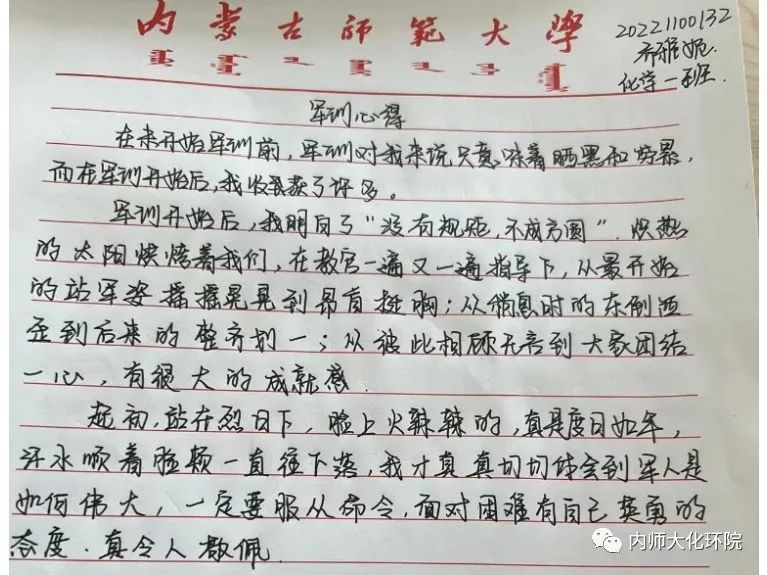 内蒙古师范大学
20221100132
乔雅妮
化学一班
军训心得
在未开始军训前，军训对我来说只意味着晒黑和劳累，
而在军训开始后，我收获了许多。
军训开始后，我明白了“没有规矩，不成方圆”. 炽热
的太阳烘烤着我们，在教官一遍又一遍指导下，从最开始
的站军姿摇摇晃晃到昂首挺胸；从稍息时的东倒西
歪到后来的整齐划一；从彼此相顾无言到大家团结
一心，有很大的成就感.
起初，站在烈日下，脸上火辣辣的，真是度日如年，
汗水顺着脸颊一直往下落，我才真真切切体会到军人是
如何伟大，一定要服从命令，面对困难有自己英勇的
态度. 真令人敬佩.
内师大化环院